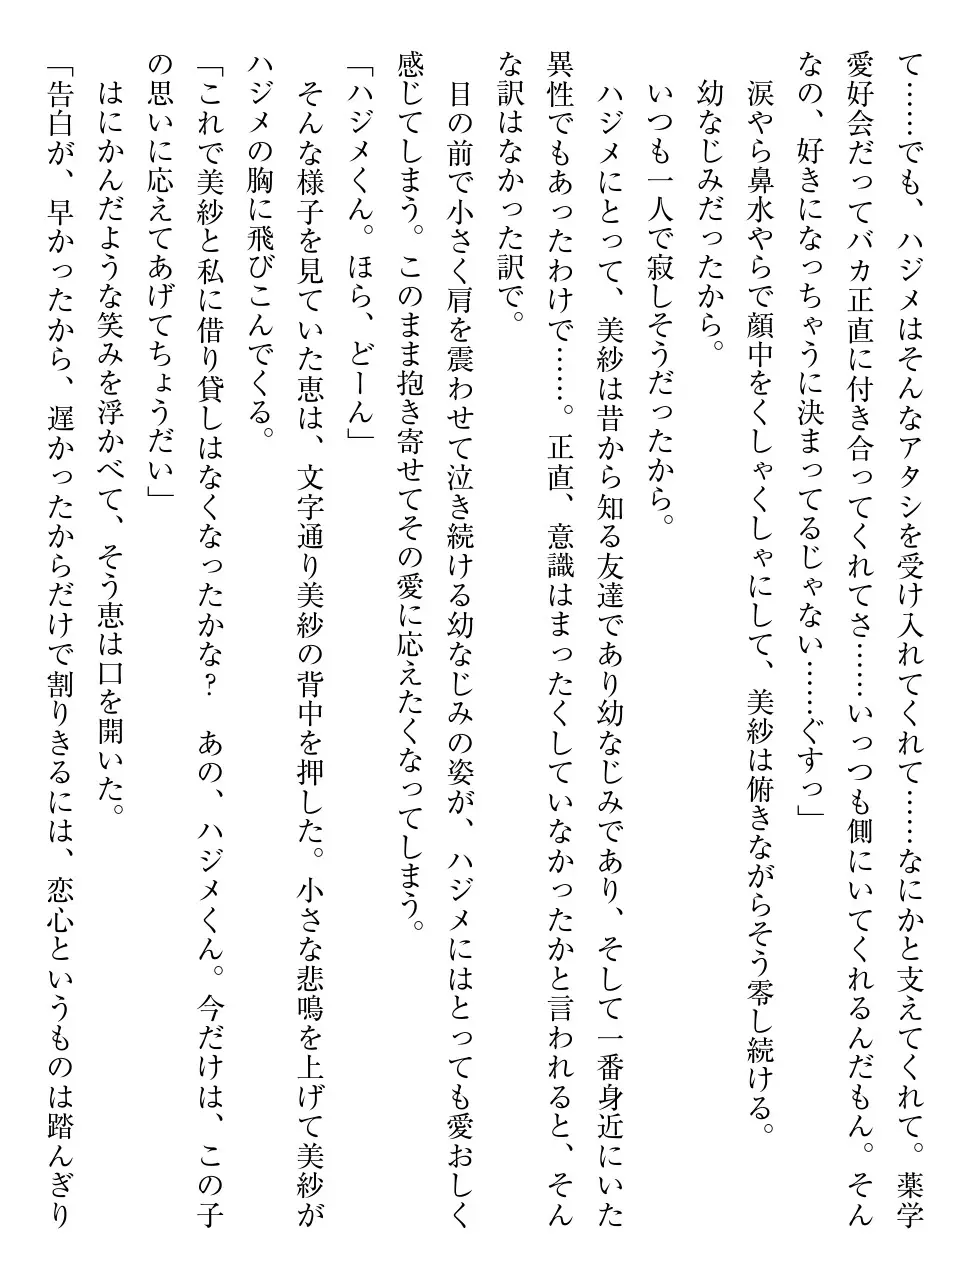 て……でも、ハジメはそんなアタシを受け入れてくれて……なにかと支えてくれて。薬学
愛好会だってバカ正直に付き合ってくれてさ……いっつも側にいてくれるんだもん。そん
なの、好きになっちゃうに決まってるじゃない……ぐすっ」
涙やら鼻水やらで顔中をくしゃくしゃにして、美紗は俯きながらそう零し続ける。
幼なじみだったから。
いつも一人で寂しそうだったから。
ハジメにとって、美紗は昔から知る友達であり幼なじみであり、そして一番身近にいた
異性でもあったわけで……。正直、意識はまったくしていなかったかと言われると、そん
な訳はなかった訳で。
目の前で小さく肩を震わせて泣き続ける幼なじみの姿が、ハジメにはとっても愛おしく
感じてしまう。このまま抱き寄せてその愛に応えたくなってしまう。
「ハジメくん。ほら、どーん」
そんな様子を見ていた恵は、文字通り美紗の背中を押した。小さな悲鳴を上げて美紗が
ハジメの胸に飛びこんでくる。
「これで美紗と私に借り貸しはなくなったかな？　あの、ハジメくん。今だけは、この子
の思いに応えてあげてちょうだい」
はにかんだような笑みを浮かべて、そう恵は口を開いた。
「告白が、早かったから、遅かったからだけで割りきるには、恋心というものは踏んぎり